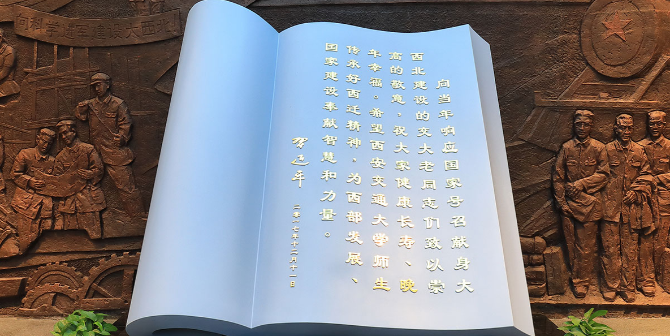 向科学进军建设大西北
向当年响应国家号召献身大
西北建设的交大老同志们致以崇
高的敬意。祝大家健康长寿、晚
年幸福。希望西安交通大学师生
传承好西迁精神，为西部发展、
国家建设奉献智慧和力量。
習近平
二〇一七年十二月十一日